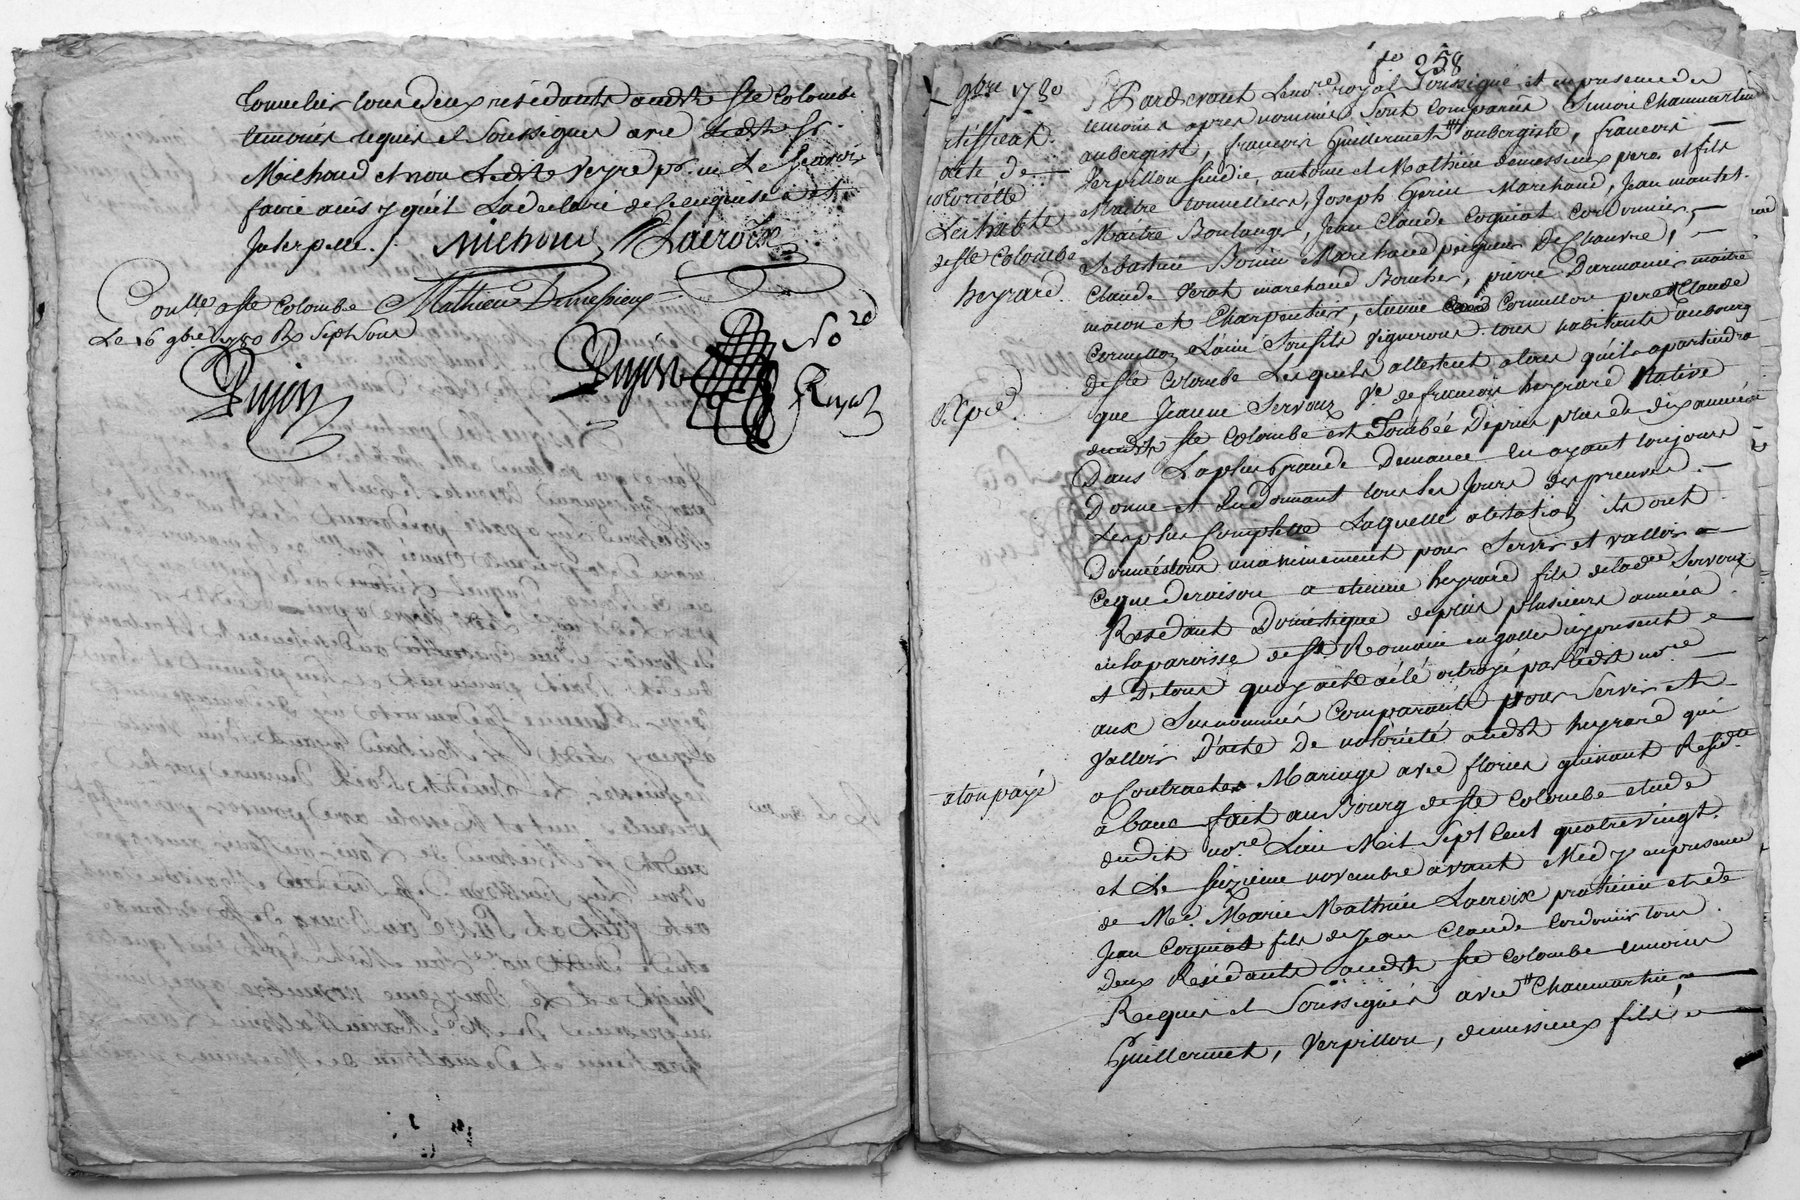 tonnelier tous deux residants audit Ste Colombe
temoins requis et soussignes avec ledit Sr
Michoud et non ledit Veyre pr. ne le scavoir
faire ainsy quil la declaré de ce enquis et
Interpellé ./. Michoud Lacroix
Mathieu Demessieux
Conllé a Ste Colombe
Le 16 9bre 1780 Rx Sept Sous
Dujon
Dujon
No re
Royal
fo 258
9bre 1780
rtifficat
acte de
notoriette
Les habts
de Ste Colombe
heyrard.
Expéd.
a ton payé
Pardevant Le nore royal soussigné et en presence des
temoins apres nommés sont comparus Simon Chaumartin
aubergiste, francois Guillermet aubergiste, francois
Verpillon sindic, antoine et Mathieu demessieux pere et fils
Maitre tonnelliers, Joseph Gerin Marchand, Jean montet
Maitre Boulanger, Jean Claude Coquiat Cordonnier,
Sebastien Bonin Marchand peigneur De Chanvre,
Claude Verat marchand Boucher, pierre Darmancier maitre
macon et Charpentier, etienne Cornillon pere et Claude
Cornillon L'ainé son fils Vignerons tous habitants au bourg
de Ste Colombe Lesquels attestent a ceux qu'il apartiendra
que Jeanne Servoux Ve de francois heyrard Native
dudit Ste Colombe est Tombée Depuis plus de dix années
Dans La plus Grande Demance En ayant toujours
Donné et En donnant tous les Jours des preuves
Les plus Complette Laquelle atestation ils ont
Donnés tous unanimement pour Servir et valloir
Ce que de raison a etienne heyrard fils de lade Servoux
Residant Domestique depuis plusieurs années
en la paroisse de St Romain en galles icy present
et De tous quoy acte a été octroyé par ledit nore
aux Surnommés Comparants pour Servir et
Valloir D'acte De notoriété audit heyrard qui
a Contracter Mariage avec florien guinant Residte
a banc fait au Bourg de Ste Colombe etude
dudit nore L'an Mil Sept Cent quatre vingt
et Le seizieme novembre avant Midy en presence
de Me Marie Mathieu Lacroix praticien et de
Jean Coquiat fils de Jean Claude Cordonier tous
Deux Residants audit Ste Colombe temoins
Requis et Soussignés avec Chaumartin,
Guillermet, Verpillon, demessieux fils